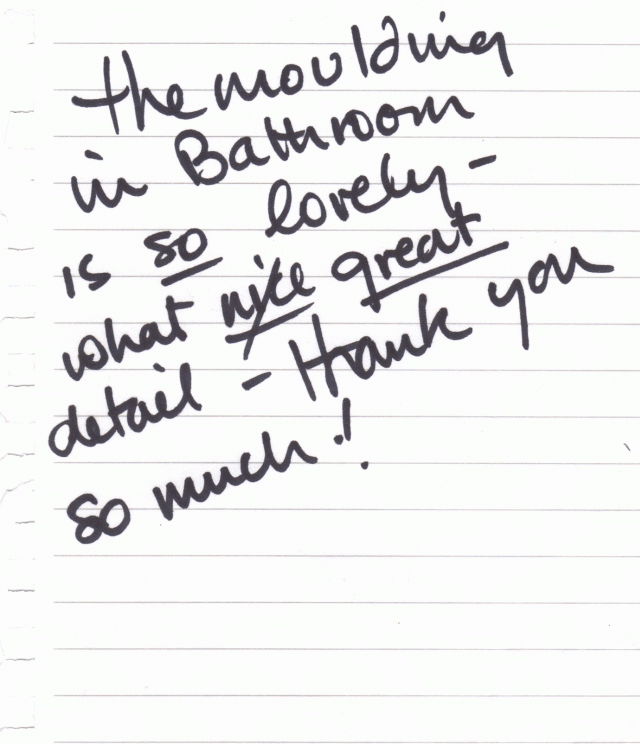 the moulding
in Bathroom
is so lovely -
what nice great
detail - Thank you
so much!